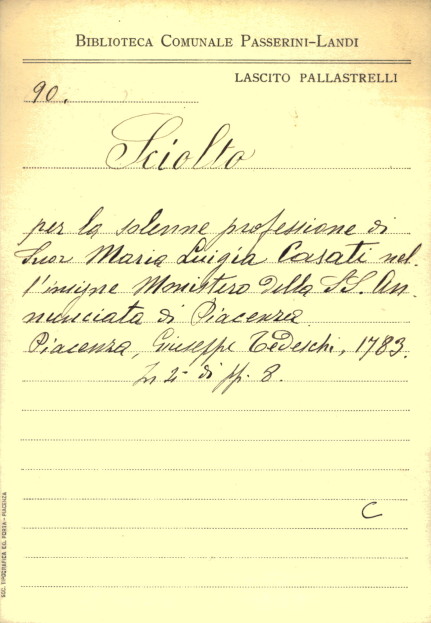 BIBLIOTECA COMUNALE PASSERINI-LANDI
LASCITO PALLASTRELLI
90.
Sciolto
per la solenne professione di
Suor Maria Luigia Casati nel-
l'insigne Monistero della SS. An-
nunciata di Piacenza.
Piacenza, Giuseppe Tedeschi, 1783.
In 2° di pp. 8.
C
SOC. TIPOGRAFICA EX. PORTA - PIACENZA